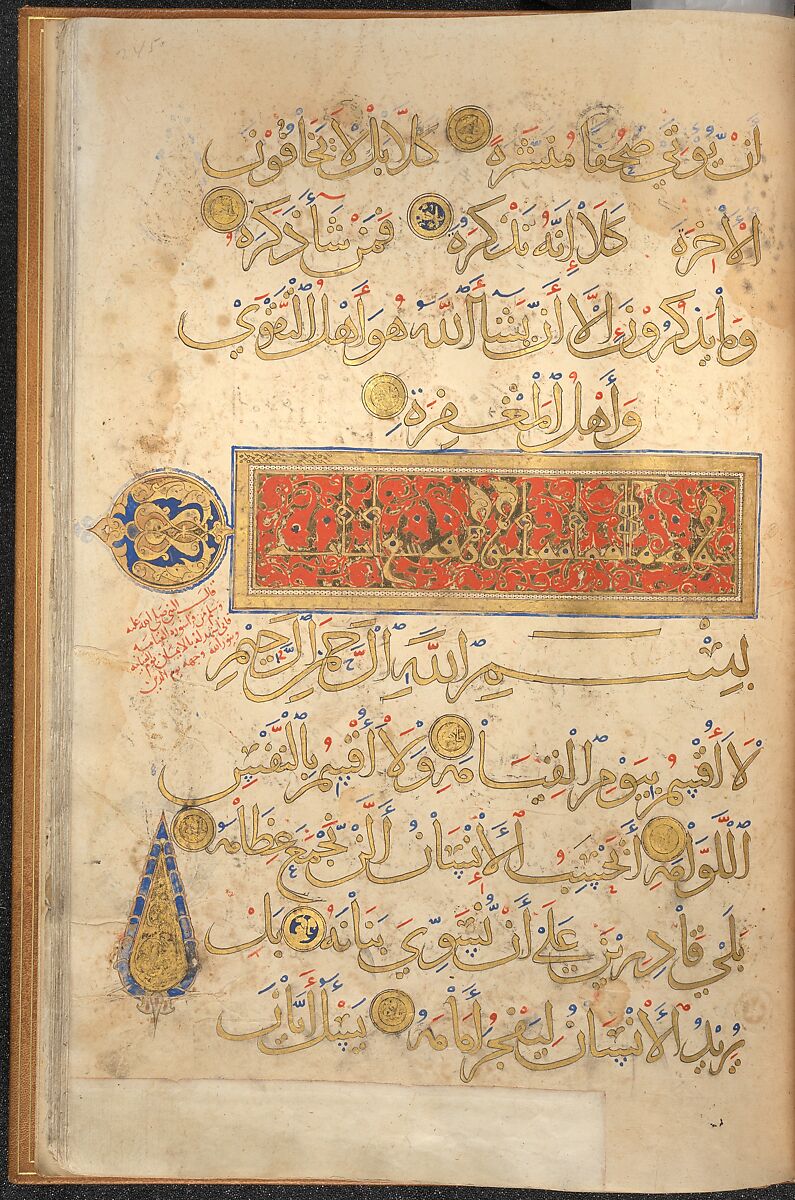 أَنْ يُؤْتَى صُحُفًا مُنَشَّرَةً كَلَّا بَلْ لَا يَخَافُونَ
الْآخِرَةَ كَلَّا إِنَّهُ تَذْكِرَةٌ فَمَنْ شَاءَ ذَكَرَهُ
وَمَا يَذْكُرُونَ إِلَّا أَنْ يَشَاءَ اللَّهُ هُوَ أَهْلُ التَّقْوَى
وَأَهْلُ الْمَغْفِرَةِ
قال النبي صلى الله عليه
بِسْمِ اللَّهِ الرَّحْمَنِ الرَّحِيمِ
لَا أُقْسِمُ بِيَوْمِ الْقِيَامَةِ وَلَا أُقْسِمُ بِالنَّفْسِ
اللَّوَّامَةِ أَيَحْسَبُ الْإِنْسَانُ أَلَّنْ نَجْمَعَ عِظَامَهُ
بَلَى قَادِرِينَ عَلَى أَنْ نُسَوِّيَ بَنَانَهُ بَلْ
يُرِيدُ الْإِنْسَانُ لِيَفْجُرَ أَمَامَهُ يَسْئَلُ أَيَّانَ